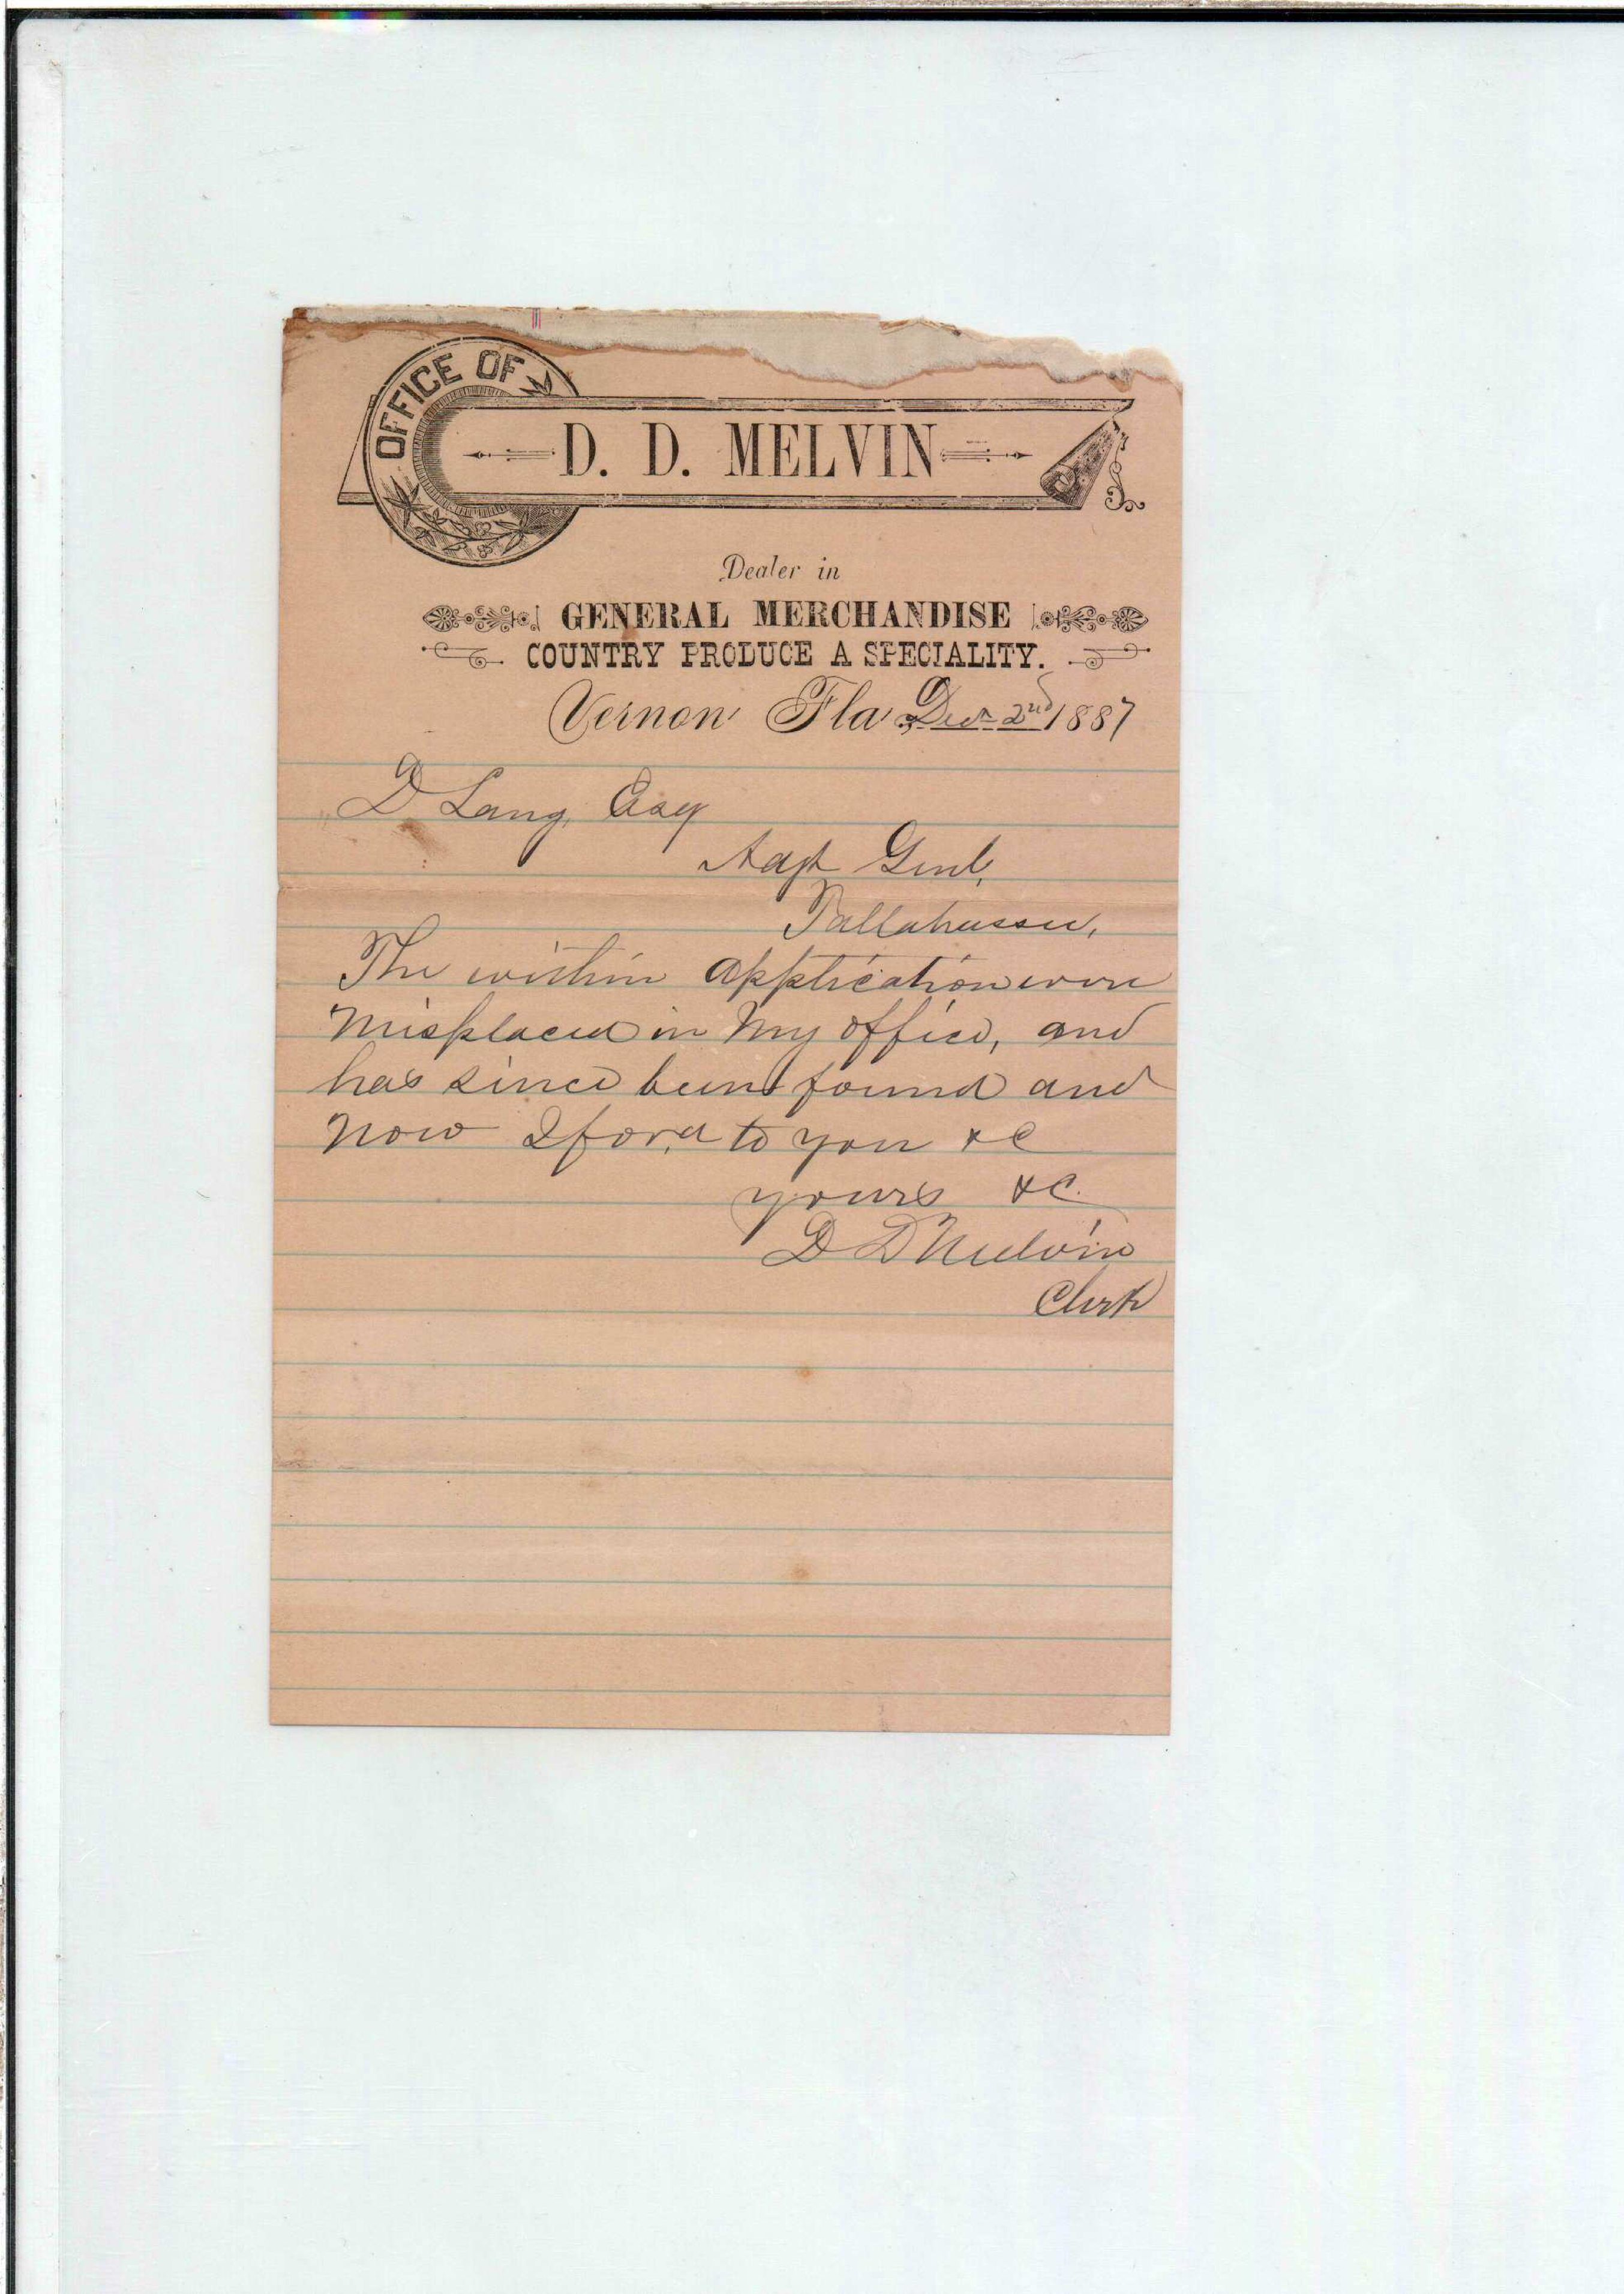 OFFICE OF
D. D. MELVIN
Dealer in
GENERAL MERCHANDISE
COUNTRY PRODUCE A SPECIALITY.
Vernon Fla Dec 2nd 1887
D Lang Esq
Adjt Genl,
Tallahassee,
The within application were
Misplaced in My office, and
has since been found and
Now I for.d to you &C
yours &C.
D D Melvin
Clerk